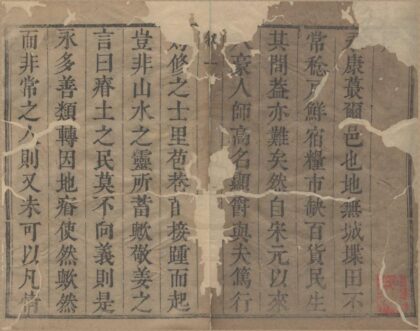 康蕞爾邑也地無城堞田不
常稔戶鮮宿糧市缺百貨民生
其間蓋亦難矣然自宋元以來
豪人師高名顯爵與夫篤行
修之士里巷接踵而起
豈非山水之靈所蓄歟敬姜之
言曰瘠土之民莫不向義則是
永多善類轉因地瘠使然歟然
而非常之人則又未可以凡情